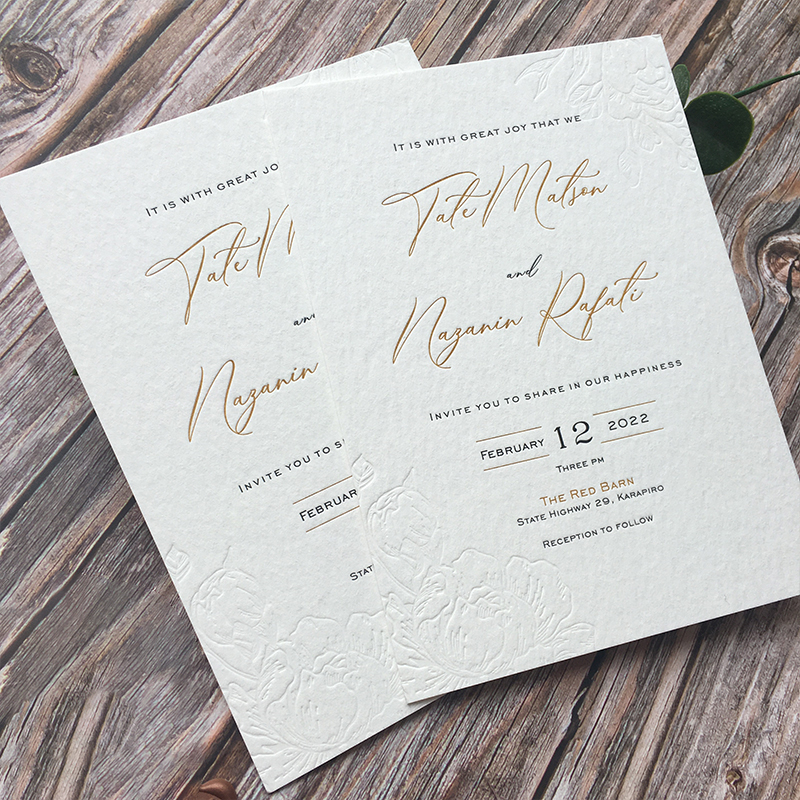 IT IS WITH GREAT JOY THAT WE
Tate Matson
and
Nazanin Rafati
INVITE YOU TO SHARE IN OUR HAPPINESS
FEBRUARY 12 2022
THREE PM
THE RED BARN
STATE HIGHWAY 29, KARAPIRO
RECEPTION TO FOLLOW
IT IS WITH GREAT JO
Tate
Nazanin
INVITE YOU TO
FEBRUAR
STAT